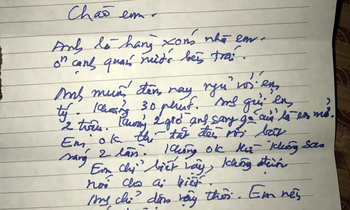 Chào em.
Anh là hàng xóm nhà em.
ở cạnh quán nước bên trái.
Anh muốn đêm nay ngủ với em
tý. Khoảng 30 phút. Anh gửi em
2 triệu. Khoảng 2 giờ anh sang gõ cửa là em mở.
Em ok thì tắt đèn rồi bật
sáng 2 lần. Không ok thì không sao
Em chỉ biết vậy, không được
nói cho ai biết.
Anh chỉ đêm nay thôi. Em nên